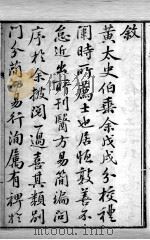 敘
黃太史伯垂余戊戌分校禮
闈時所薦士也居恆敦善不
怠近出所刊醫方易簡編問
序於余披閱一過喜其類別
門分簡而易行洵屬有裨於